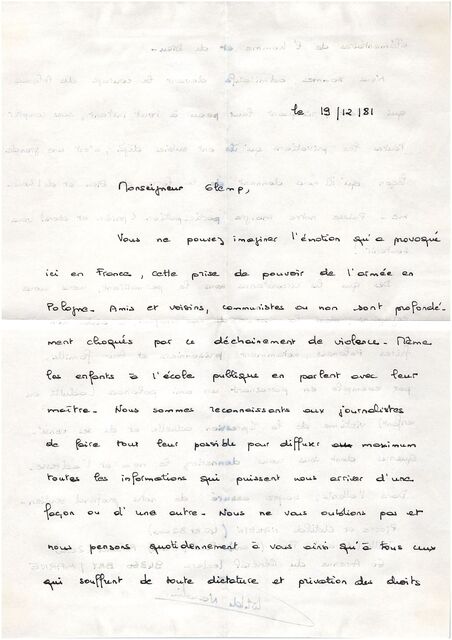 le 19/12/81
Monseigneur Glemp,
Vous ne pouvez imaginer l'émotion qu'a provoqué
ici en France, cette prise de pouvoir de l'armée en
Pologne. Amis et voisins, communistes ou non sont profondé-
ment choqués par ce déchainement de violence. Même
les enfants à l'école publique en parlent avec leur
maître. Nous sommes reconnaissants aux journalistes
de faire tout leur possible pour diffuser au maximum
toutes les informations qui puissent nous arriver d'une
façon ou d'une autre. Nous ne vous oublions pas et
nous pensons quotidiennement à vous ainsi qu'à tous ceux
qui souffrent de toute dictature et privation des droits